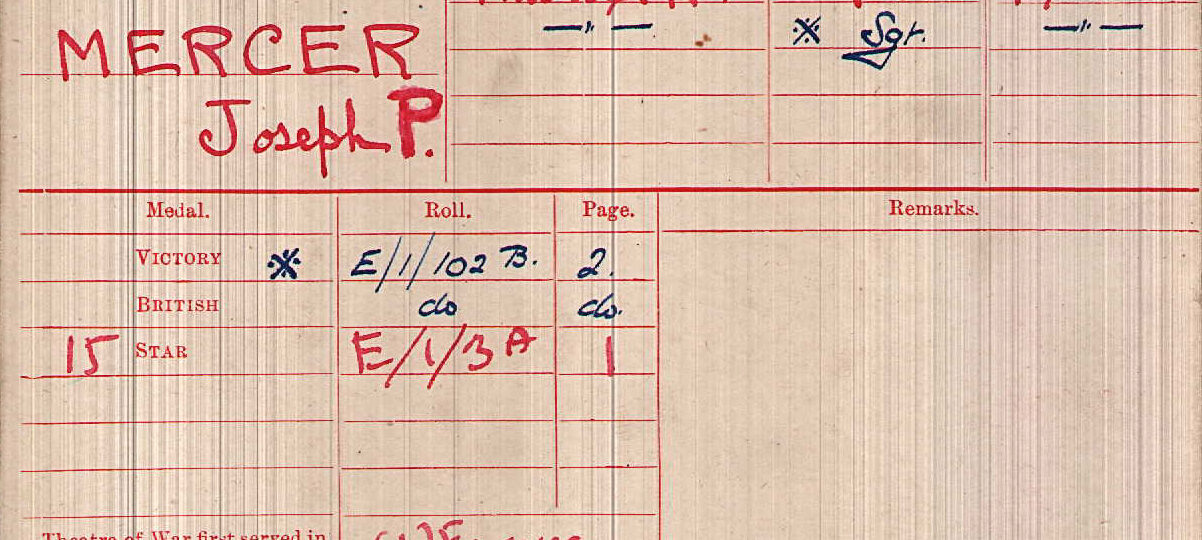 MERCER
Joseph P.
—〃— ※ Sgr. —〃—
Medal. Roll. Page. Remarks.
VICTORY ※ E/1/102 B. 2.
BRITISH do do.
15 STAR E/1/3 A 1
Theatre of War first served in